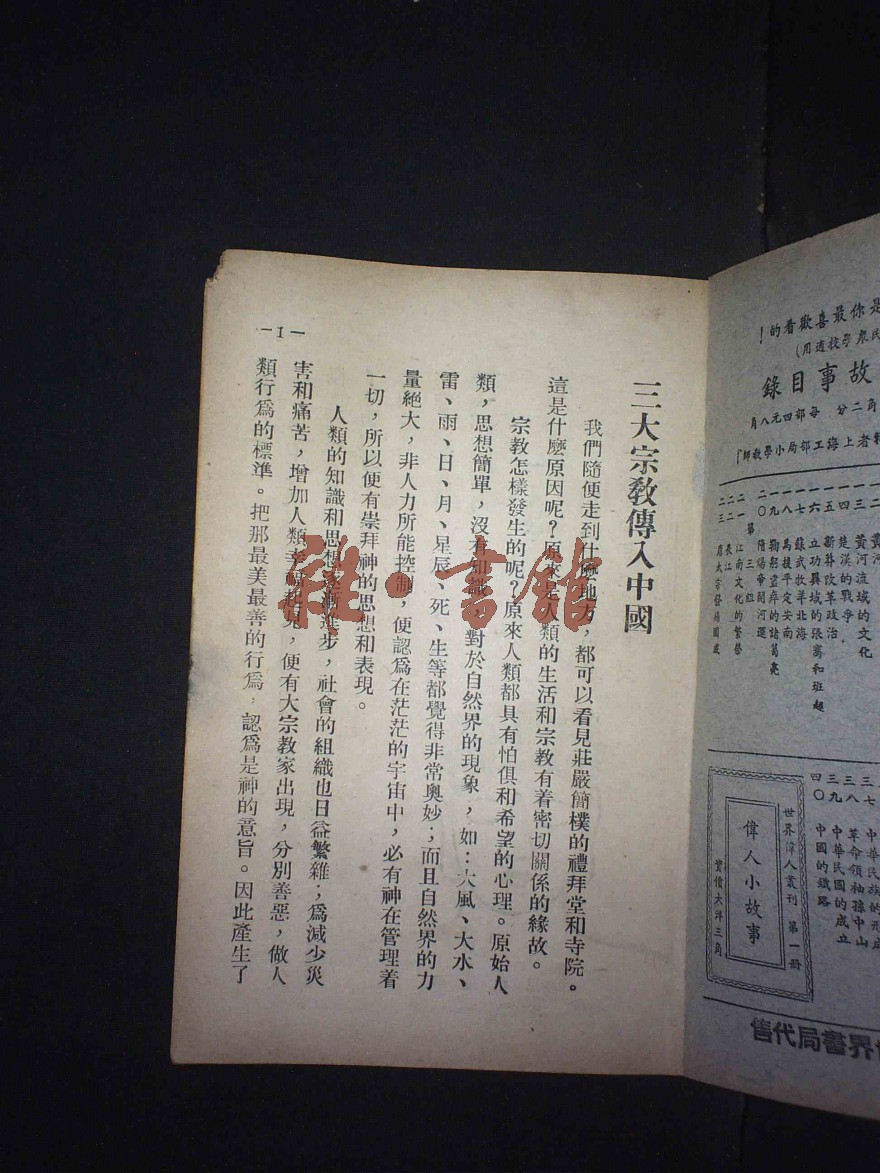 是你最喜歡看的！
民衆學校適用)
故事目錄
角二分　每部四元八角
者上海工部局小學教師
黃河流域的文化
一四　楚漢的戰爭
一五　新莽改革政治
一六　立功異域的張騫和班超
一七　蘇武牧羊北海
一八　馬援平定安南
一九　鞠躬盡瘁的諸葛亮
二〇　隋煬帝開河運
第三組
二一　江南文化的繁榮
二二　長江
二三　唐太宗發揚國威
三七　中華民族的形成
三八　革命領袖孫中山
三九　中華民國的成立
四〇　中國的鐵路
世界偉人叢刊　第一冊
偉人小故事
實價大洋三角
世界書局代售
三大宗教傳入中國
我們隨便走到什麼地方，都可以看見莊嚴簡樸的禮拜堂和寺院。
這是什麼原因呢？原來是人類的生活和宗教有着密切關係的緣故。
宗教怎樣發生的呢？原來人類都具有怕俱和希望的心理。原始人
類，思想簡單，沒有知識，對於自然界的現象，如：大風、大水、
雷、雨、日、月、星辰、死、生等都覺得非常奧妙；而且自然界的力
量絕大，非人力所能控制，便認爲在茫茫的宇宙中，必有神在管理着
一切，所以便有崇拜神的思想和表現。
人類的知識和思想逐漸進步，社會的組織也日益繁雜；爲減少災
害和痛苦，增加人類幸福起見，便有大宗教家出現，分別善惡，做人
類行爲的標準。把那最美最善的行爲，認爲是神的意旨。因此產生了
—1—
雜·書館